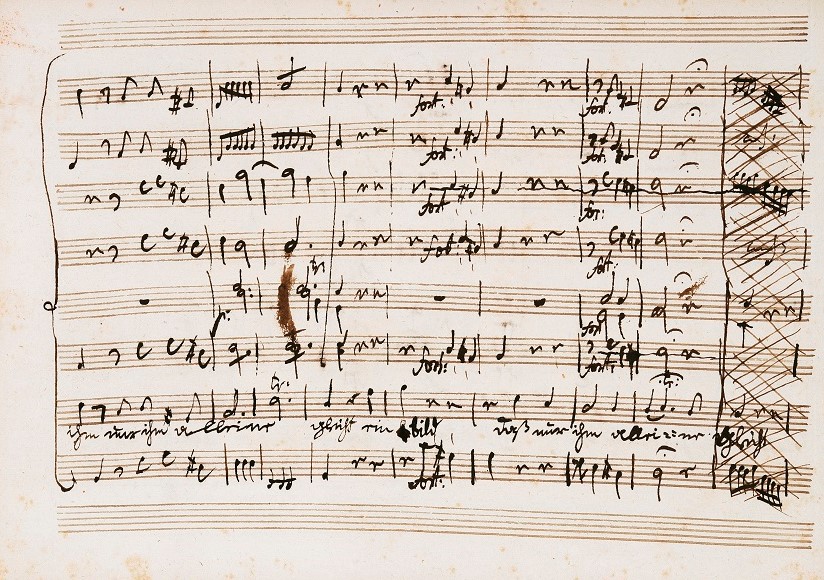 fort:
fort:
for:
fort:
for:
fort:
fort:
for:
fort:
fort:
fort:
tr:
tr:
ihm nur ihm alleine gleicht ein bild daß nur ihm alleine gleicht
fort: